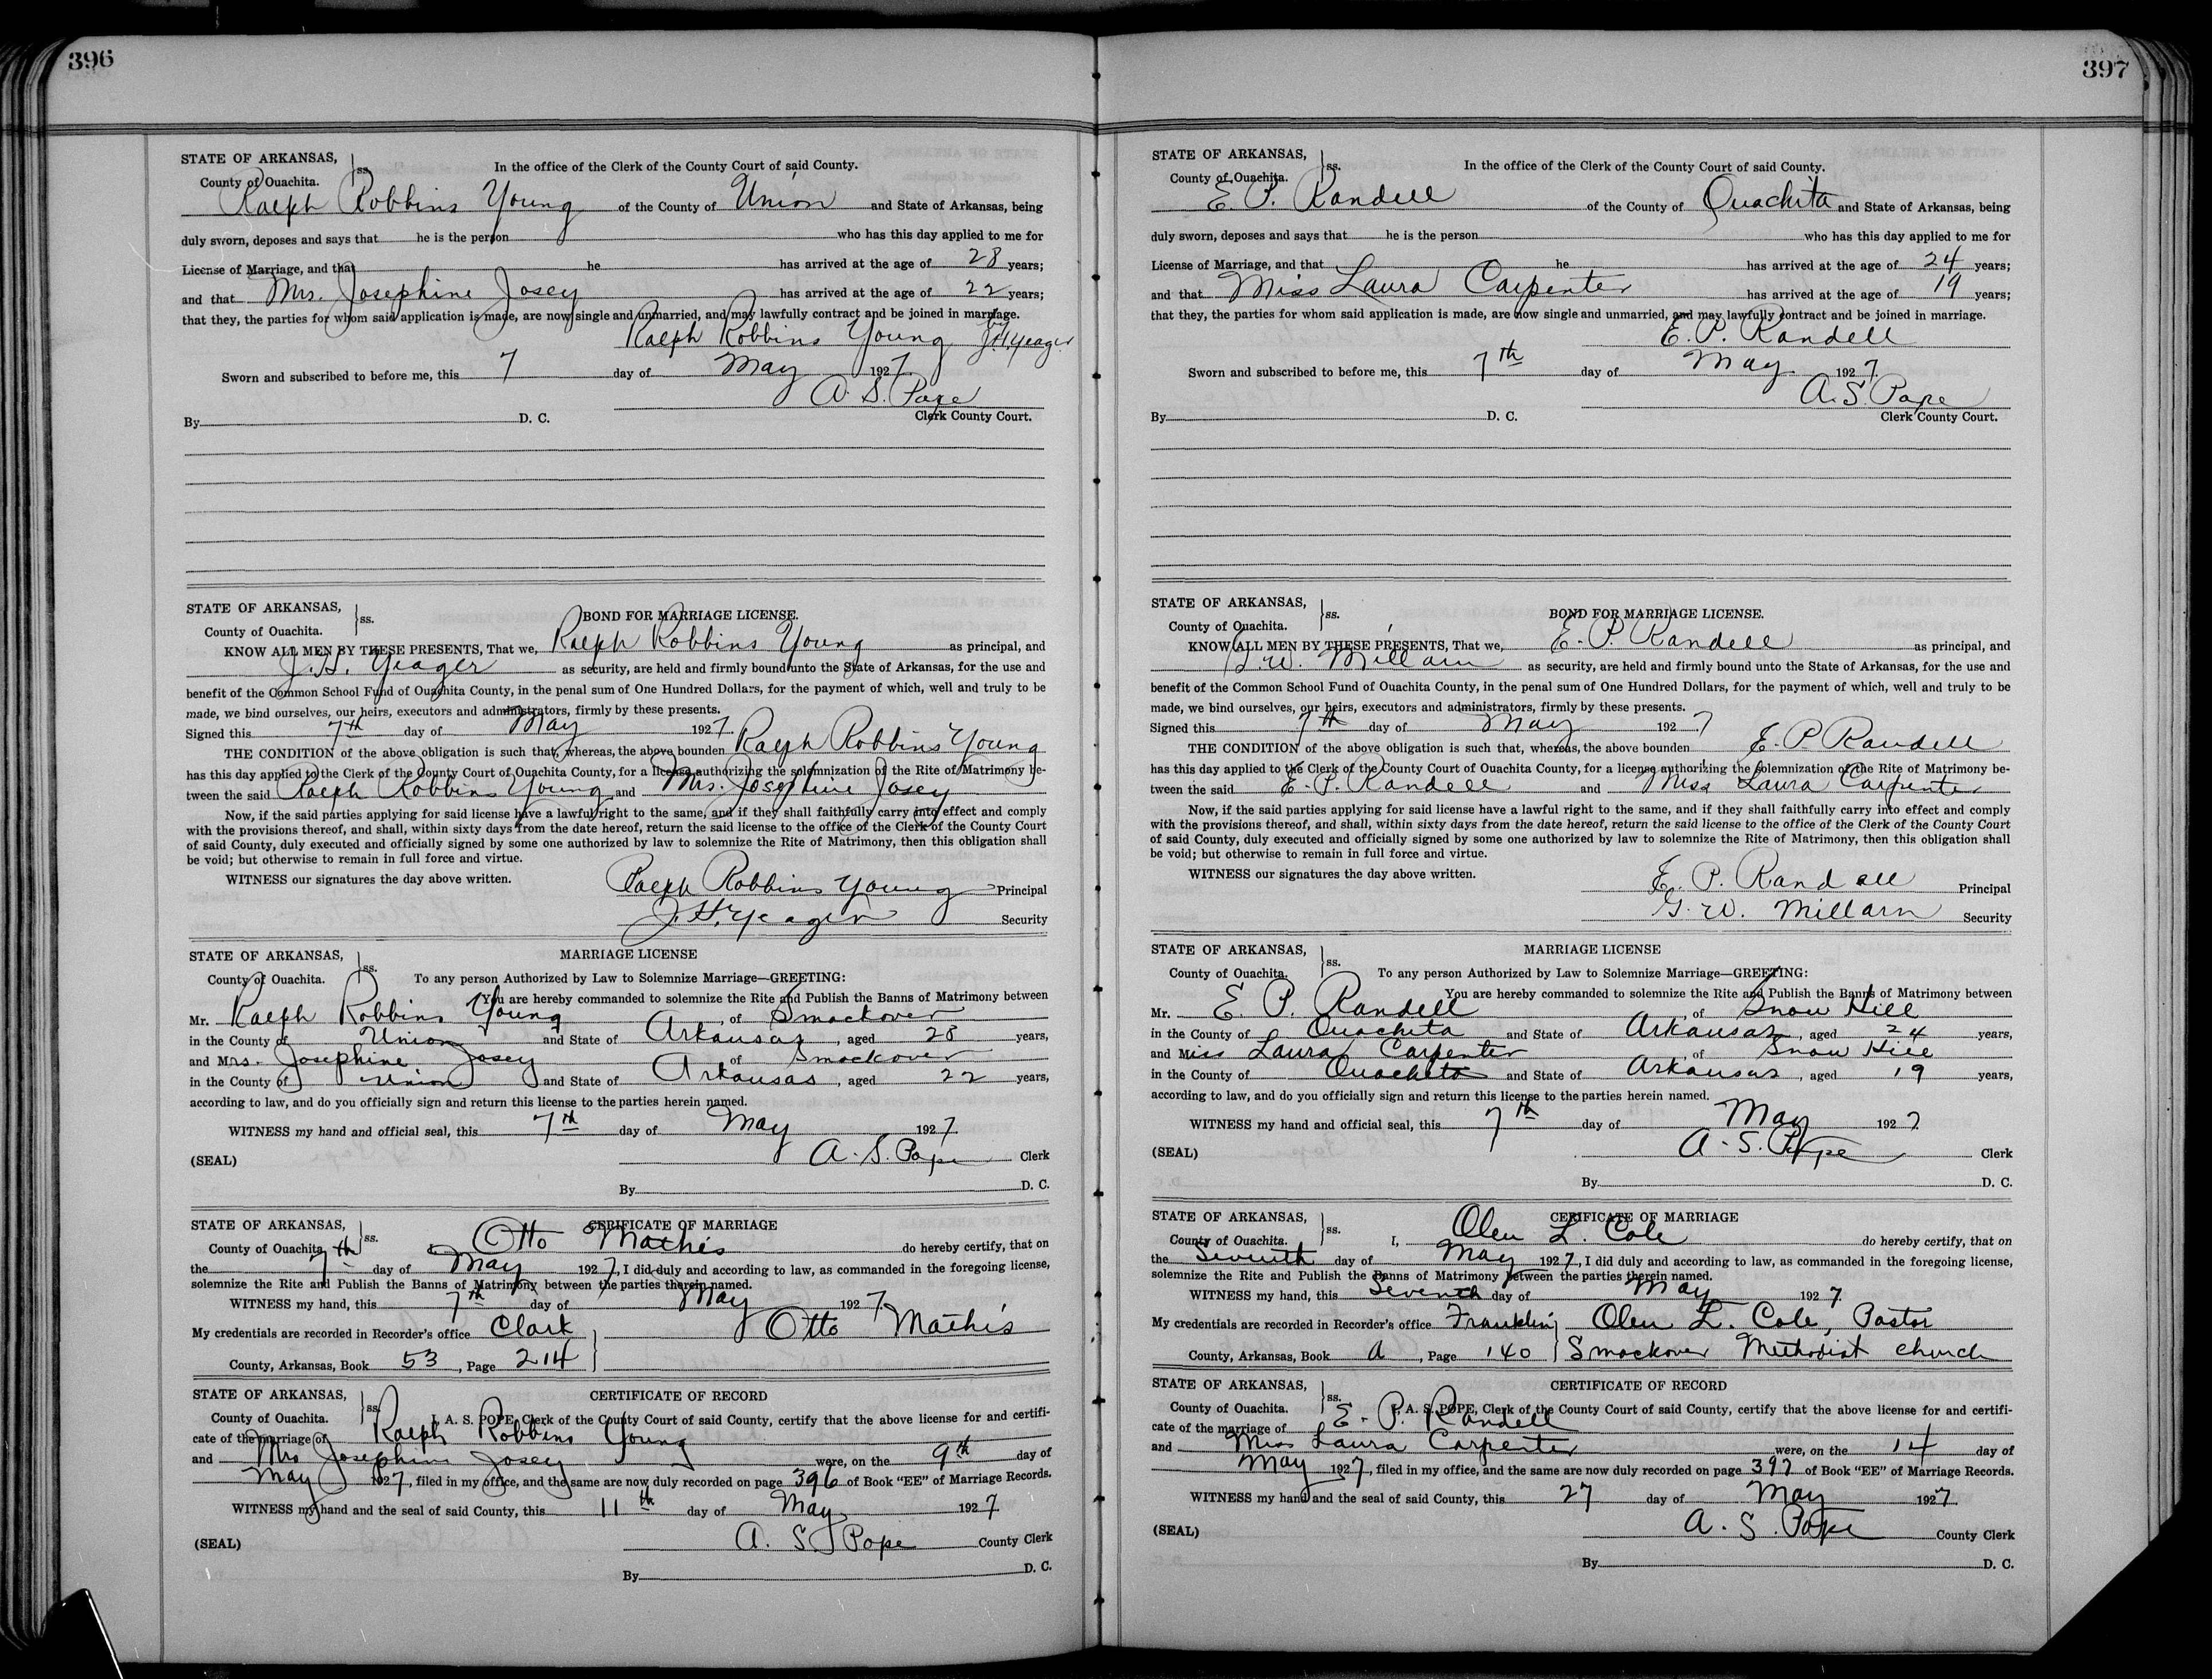 396
STATE OF ARKANSAS,
County of Ouachita.
ss.
In the office of the Clerk of the County Court of said County.
Ralph Robbins Young of the County of Union and State of Arkansas, being
duly sworn, deposes and says that he is the person who has this day applied to me for
License of Marriage, and that he has arrived at the age of 28 years;
and that Mrs. Josephine Josey has arrived at the age of 22 years;
that they, the parties for whom said application is made, are now single and unmarried, and may lawfully contract and be joined in marriage.
Ralph Robbins Young by J.H. Yeager
Sworn and subscribed to before me, this 7 day of May 1927.
A. S. Pope
By D. C. Clerk County Court.
STATE OF ARKANSAS,
County of Ouachita.
ss.
BOND FOR MARRIAGE LICENSE.
KNOW ALL MEN BY THESE PRESENTS, That we, Ralph Robbins Young as principal, and
J. H. Yeager as security, are held and firmly bound unto the State of Arkansas, for the use and
benefit of the Common School Fund of Ouachita County, in the penal sum of One Hundred Dollars, for the payment of which, well and truly to be
made, we bind ourselves, our heirs, executors and administrators, firmly by these presents.
Signed this 7th day of May 1927.
THE CONDITION of the above obligation is such that, whereas, the above bounden Ralph Robbins Young
has this day applied to the Clerk of the County Court of Ouachita County, for a license authorizing the solemnization of the Rite of Matrimony be-
tween the said Ralph Robbins Young and Mrs. Josephine Josey
Now, if the said parties applying for said license have a lawful right to the same, and if they shall faithfully carry into effect and comply
with the provisions thereof, and shall, within sixty days from the date hereof, return the said license to the office of the Clerk of the County Court
of said County, duly executed and officially signed by some one authorized by law to solemnize the Rite of Matrimony, then this obligation shall
be void; but otherwise to remain in full force and virtue.
WITNESS our signatures the day above written.
Ralph Robbins Young Principal
J. H. Yeager Security
STATE OF ARKANSAS,
County of Ouachita.
ss.
MARRIAGE LICENSE
To any person Authorized by Law to Solemnize Marriage—GREETING:
You are hereby commanded to solemnize the Rite and Publish the Banns of Matrimony between
Mr. Ralph Robbins Young, of Smackover
in the County of Union and State of Arkansas, aged 28 years,
and Mrs. Josephine Josey of Smackover
in the County of Union and State of Arkansas, aged 22 years,
according to law, and do you officially sign and return this license to the parties herein named.
WITNESS my hand and official seal, this 7th day of May 1927
(SEAL) A. S. Pope Clerk
By D. C.
STATE OF ARKANSAS,
County of Ouachita
ss.
CERIFICATE OF MARRIAGE
Otto Mathis do hereby certify, that on
the 7th day of May 1927, I did duly and according to law, as commanded in the foregoing license,
solemnize the Rite and Publish the Banns of Matrimony between the parties therein named.
WITNESS my hand, this 7th day of May 1927.
My credentials are recorded in Recorder's office Clark Otto Mathis
County, Arkansas, Book 53, Page 214
STATE OF ARKANSAS,
County of Ouachita.
ss.
CERTIFICATE OF RECORD
I, A. S. POPE, Clerk of the County Court of said County, certify that the above license for and certifi-
cate of the marriage of Ralph Robbins Young
and Mrs Josephine Josey were, on the 9th day of
May 1927, filed in my office, and the same are now duly recorded on page 396 of Book "EE" of Marriage Records.
WITNESS my hand and the seal of said County, this 11th day of May 1927
(SEAL) A. S. Pope County Clerk
By D. C.
397
STATE OF ARKANSAS,
County of Ouachita.
ss.
In the office of the Clerk of the County Court of said County.
E. P. Randell of the County of Ouachita and State of Arkansas, being
duly sworn, deposes and says that he is the person who has this day applied to me for
License of Marriage, and that he has arrived at the age of 24 years;
and that Miss Laura Carpenter has arrived at the age of 19 years;
that they, the parties for whom said application is made, are now single and unmarried, and may lawfully contract and be joined in marriage.
E. P. Randell
Sworn and subscribed to before me, this 7th day of May 1927.
A. S. Pope
By D. C. Clerk County Court.
STATE OF ARKANSAS,
County of Ouachita.
ss.
BOND FOR MARRIAGE LICENSE.
KNOW ALL MEN BY THESE PRESENTS, That we, E. P. Randell as principal, and
G. W. Millarn as security, are held and firmly bound unto the State of Arkansas, for the use and
benefit of the Common School Fund of Ouachita County, in the penal sum of One Hundred Dollars, for the payment of which, well and truly to be
made, we bind ourselves, our heirs, executors and administrators, firmly by these presents.
Signed this 7th day of May 1927
THE CONDITION of the above obligation is such that, whereas, the above bounden E. P. Randell
has this day applied to the Clerk of the County Court of Ouachita County, for a license authorizing the solemnization of the Rite of Matrimony be-
tween the said E. P. Randell and Miss Laura Carpenter
Now, if the said parties applying for said license have a lawful right to the same, and if they shall faithfully carry into effect and comply
with the provisions thereof, and shall, within sixty days from the date hereof, return the said license to the office of the Clerk of the County Court
of said County, duly executed and officially signed by some one authorized by law to solemnize the Rite of Matrimony, then this obligation shall
be void; but otherwise to remain in full force and virtue.
WITNESS our signatures the day above written.
E. P. Randell Principal
G. W. Millarn Security
STATE OF ARKANSAS,
County of Ouachita.
ss.
MARRIAGE LICENSE
To any person Authorized by Law to Solemnize Marriage—GREETING:
You are hereby commanded to solemnize the Rite and Publish the Banns of Matrimony between
Mr. E. P. Randell, of Snow Hill
in the County of Ouachita and State of Arkansas, aged 24 years,
and Miss Laura Carpenter of Snow Hill
in the County of Ouachita and State of Arkansas, aged 19 years,
according to law, and do you officially sign and return this license to the parties herein named.
WITNESS my hand and official seal, this 7th day of May 1927
(SEAL) A. S. Pope Clerk
By D. C.
STATE OF ARKANSAS,
County of Ouachita.
ss.
CERIFICATE OF MARRIAGE
I, Olen L. Cole do hereby certify, that on
the Seventh day of May 1927, I did duly and according to law, as commanded in the foregoing license,
solemnize the Rite and Publish the Banns of Matrimony between the parties therein named.
WITNESS my hand, this Seventh day of May 1927.
My credentials are recorded in Recorder's office Franklin Olen L. Cole, Pastor
County, Arkansas, Book A, Page 140 Smackover Methodist church
STATE OF ARKANSAS,
County of Ouachita.
ss.
CERTIFICATE OF RECORD
I, A. S. POPE, Clerk of the County Court of said County, certify that the above license for and certifi-
cate of the marriage of E. P. Randell
and Miss Laura Carpenter were, on the 14 day of
May 1927, filed in my office, and the same are now duly recorded on page 397 of Book "EE" of Marriage Records.
WITNESS my hand and the seal of said County, this 27 day of May 1927
(SEAL) A. S. Pope County Clerk
By D. C.